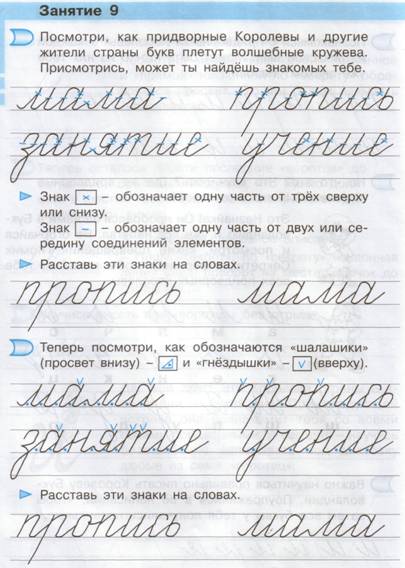 Занятие 9
Посмотри, как придворные Королевы и другие
жители страны букв плетут волшебные кружева.
Присмотрись, может ты найдёшь знакомых тебе.
мама пропись
занятие учение
Знак × – обозначает одну часть от трёх сверху
или снизу.
Знак – – обозначает одну часть от двух или се-
редину соединений элементов.
Расставь эти знаки на словах.
пропись мама
Теперь посмотри, как обозначаются «шалашики»
(просвет внизу) – и «гнёздышки» – v (вверху).
мама пропись
занятие учение
Расставь эти знаки на словах.
пропись мама